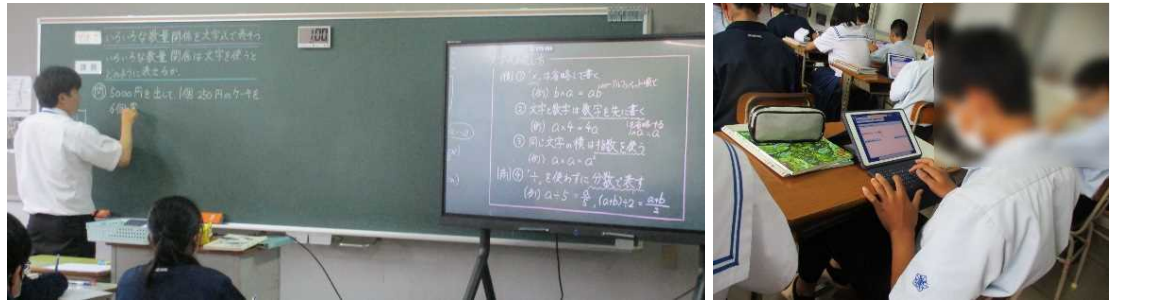 いろいろな数量関係を文字式で表そう
課題
いろいろな数量関係は文字を使うと
どのように表せるか。
問 5000円を出して、1個250円のケーキを
6個買
100
① "×"は省略して書く
(例) b×a = ab
② 文字と数字は数字を先に書く
(例) a×4 = 4a
1×a = a
③ 同じ文字の積は指数を使う
(例) a×a = a²
④ "÷"を使わずに分数で表す
(例) a÷5 = a/5, (a+b)÷2 = (a+b)/2